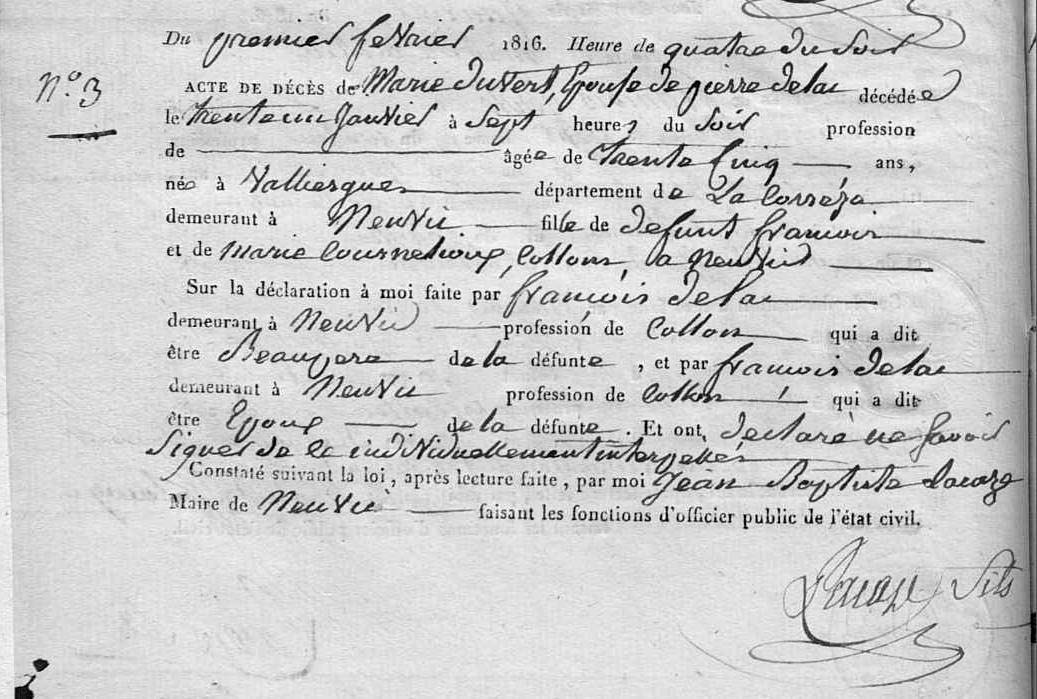 Du premier fevrier 1816. Heure de quatre du Soir
N.o 3
ACTE DE DÉCÈS de Marie duvert, Epouse de pierre delac décédée
le trente un Janvier à Sept heures du Soir profession
de âgée de trente Cinq ans,
née à Valliergues département de La Correza
demeurant à Neuvic fille de defunt francois
et de marie , Collons, a Neuvic
Sur la déclaration à moi faite par francois delac
demeurant à Neuvic profession de Collon qui a dit
être Beaupere de la défunte , et par francois delac
demeurant à Neuvic profession de Collon qui a dit
être Epoux de la défunte . Et ont, declaré ne Savoir
Signer de ce individuellement interpellés
Constaté suivant la loi, après lecture faite, par moi Jean Baptiste Lacaze
Maire de Neuvic faisant les fonctions d'officier public de l'état civil.
Lacaze fils